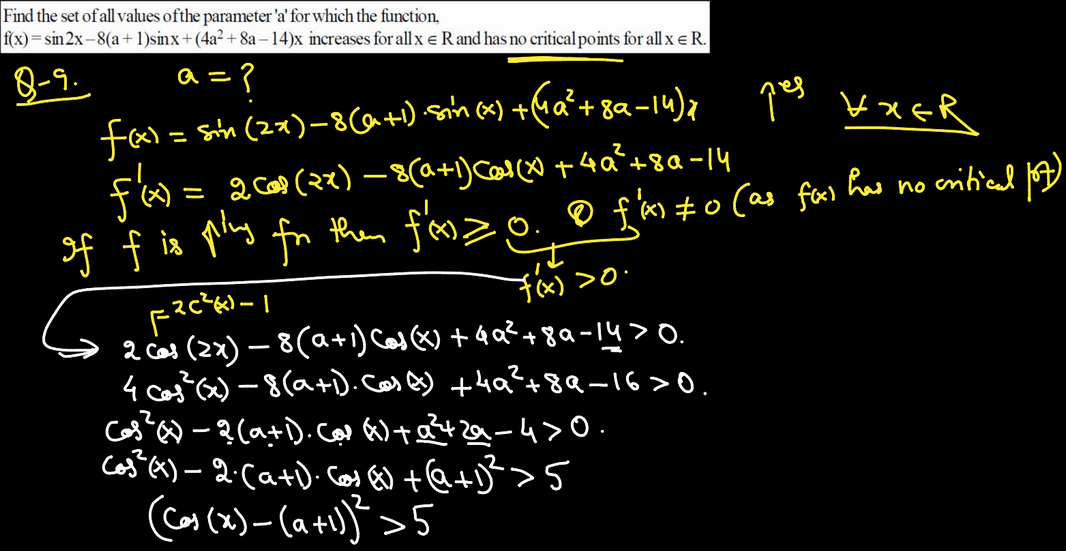 Find the set of all values of the parameter 'a' for which the function,
f(x) = sin2x – 8(a + 1)sinx + (4a² + 8a – 14)x increases for all x ∈ R and has no critical points for all x ∈ R.
Q-9. a = ?
f(x) = sin(2x) – 8(a+1).sin(x) + (4a² + 8a – 14)x ↑es ∀ x ∈ R
f'(x) = 2cos(2x) – 8(a+1)cos(x) + 4a² + 8a – 14
If f is ↑ing fn then f'(x) ≥ 0. f'(x) ≠ 0 (as f(x) has no critical pt)
f'(x) > 0.
= 2c²(x) – 1
2cos(2x) – 8(a+1)cos(x) + 4a² + 8a – 14 > 0.
4cos²(x) – 8(a+1).cos(x) + 4a² + 8a – 16 > 0.
cos²(x) – 2(a+1).cos(x) + a² + 2a – 4 > 0.
cos²(x) – 2.(a+1).cos(x) + (a+1)² > 5
(cos(x) – (a+1))² > 5